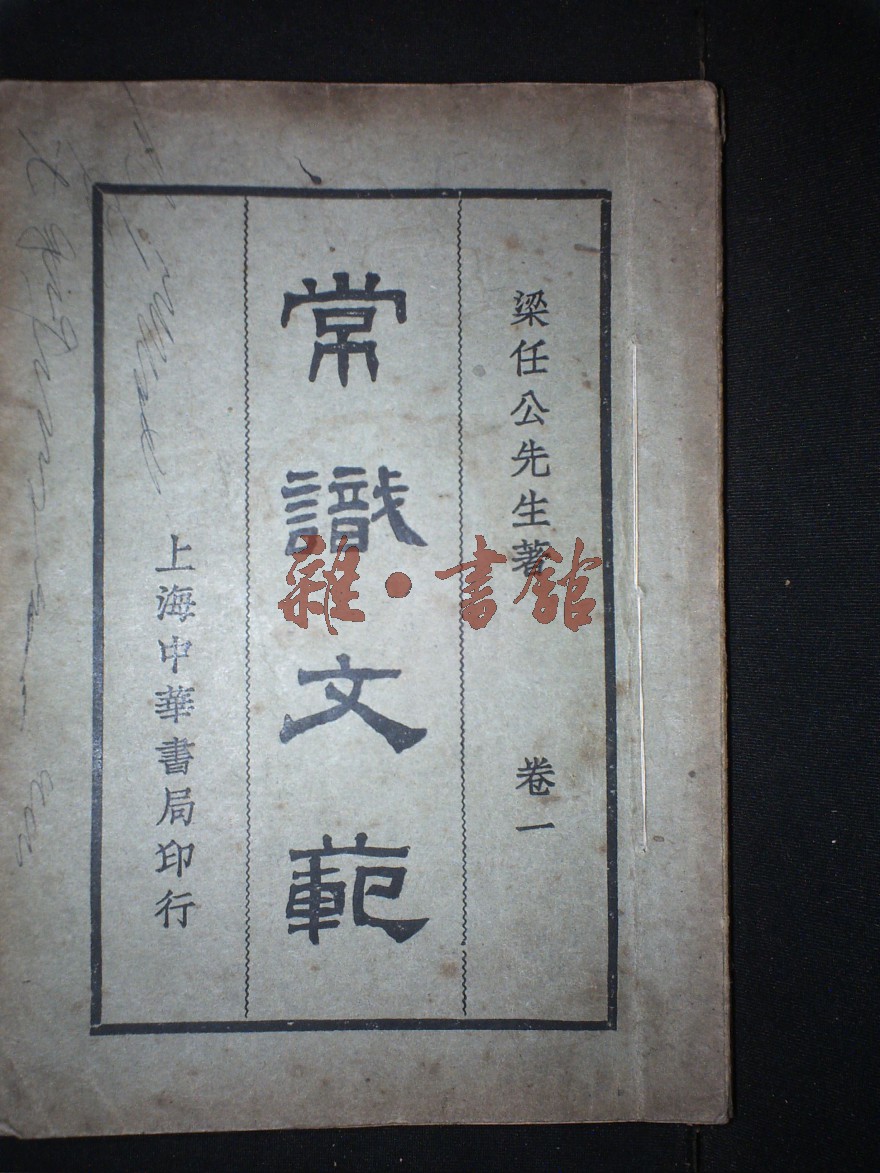 梁任公先生著 卷一
常識文範
上海中華書局印行
雜·書館